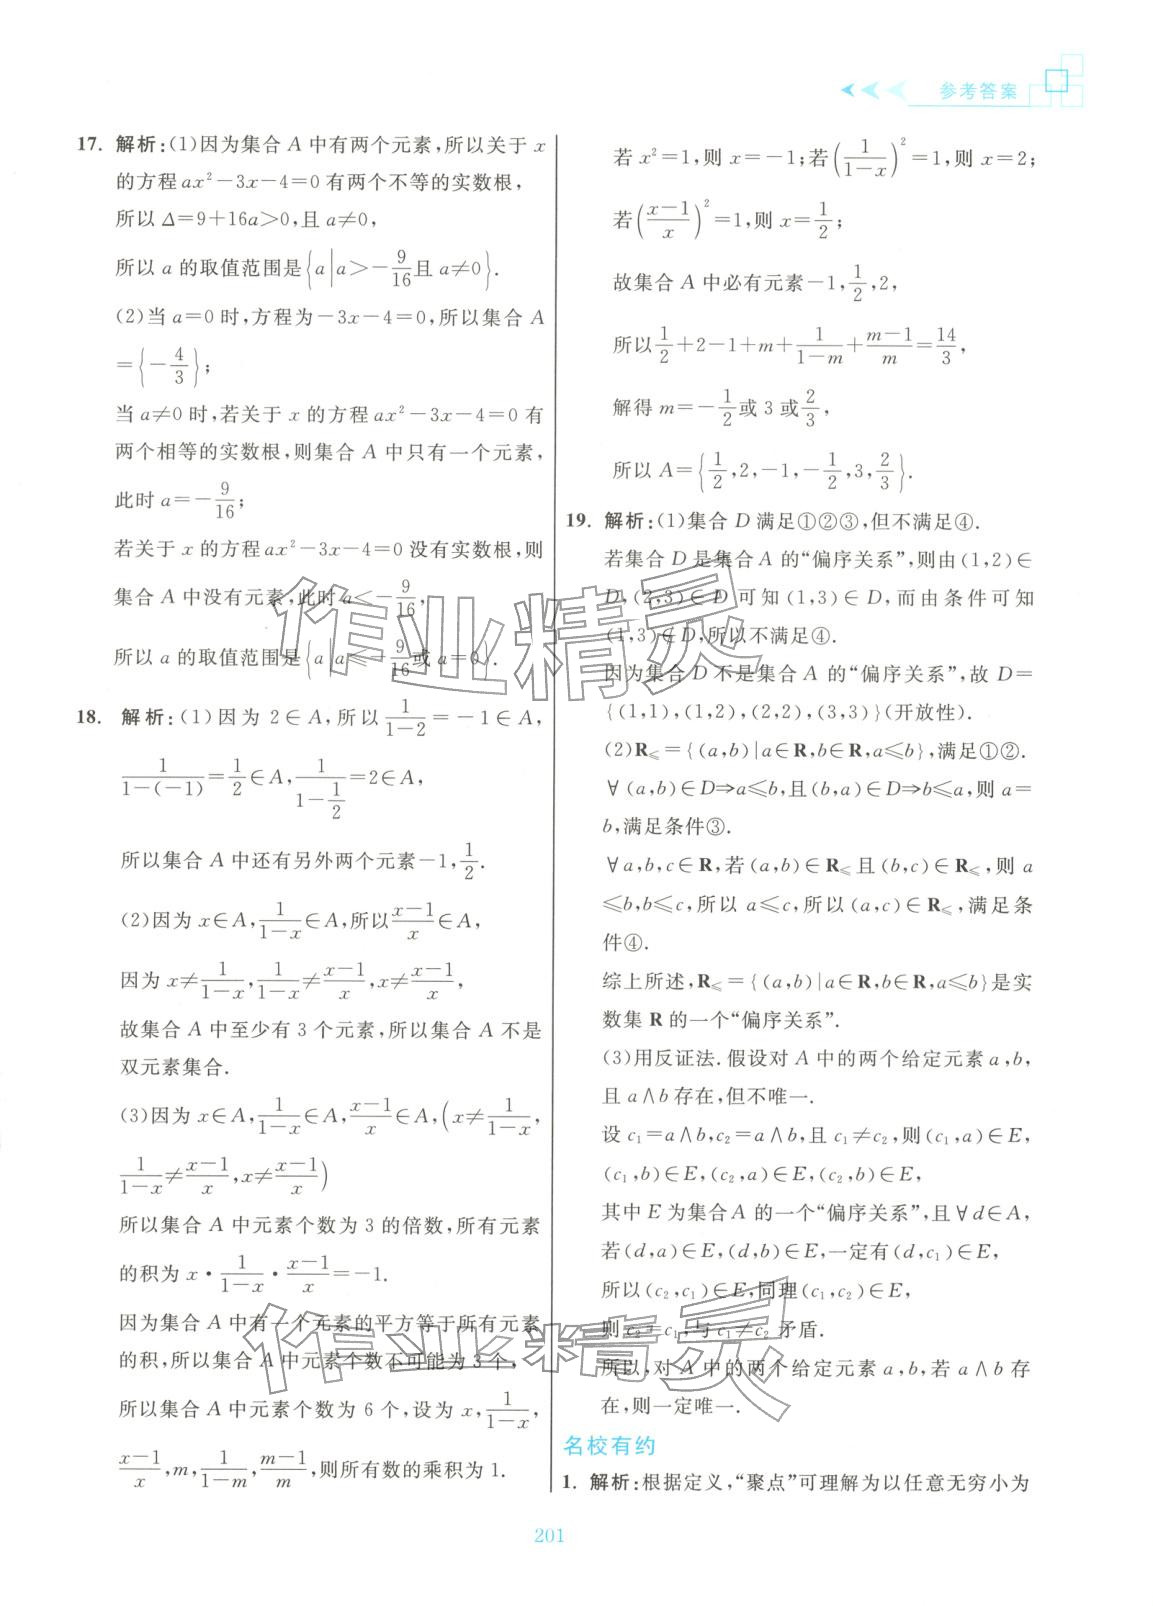 参考答案
17. 解析:(1)因为集合 A 中有两个元素,所以关于 x
的方程 ax²-3x-4=0 有两个不等的实数根,
所以 Δ=9+16a>0,且 a≠0,
所以 a 的取值范围是{a|a>-9/16且 a≠0}.
(2)当 a=0 时,方程为-3x-4=0,所以集合 A
={-4/3};
当 a≠0 时,若关于 x 的方程 ax²-3x-4=0 有
两个相等的实数根,则集合 A 中只有一个元素,
此时 a=-9/16;
若关于 x 的方程 ax²-3x-4=0 没有实数根,则
集合 A 中没有元素,此时 a<-9/16,
所以 a 的取值范围是{a|a≤-9/16或 a=0}.
18. 解析:(1)因为 2∈A,所以 1/(1-2)=-1∈A,
1/(1-(-1))=1/2∈A,1/(1-1/2)=2∈A,
所以集合 A 中还有另外两个元素-1,1/2.
(2)因为 x∈A,1/(1-x)∈A,所以(x-1)/x∈A,
因为 x≠1/(1-x),1/(1-x)≠(x-1)/x,x≠(x-1)/x,
故集合 A 中至少有 3 个元素,所以集合 A 不是
双元素集合.
(3)因为 x∈A,1/(1-x)∈A,(x-1)/x∈A,(x≠1/(1-x),
1/(1-x)≠(x-1)/x,x≠(x-1)/x)
所以集合 A 中元素个数为 3 的倍数,所有元素
的积为 x·1/(1-x)·(x-1)/x=-1.
因为集合 A 中有一个元素的平方等于所有元素
的积,所以集合 A 中元素个数不可能为 3 个,
所以集合 A 中元素个数为 6 个,设为 x,1/(1-x),
(x-1)/x,m,1/(1-m),(m-1)/m,则所有数的乘积为 1.
若 x²=1,则 x=-1;若(1/(1-x))²=1,则 x=2;
若((x-1)/x)²=1,则 x=1/2;
故集合 A 中必有元素-1,1/2,2,
所以1/2+2-1+m+1/(1-m)+(m-1)/m=14/3,
解得 m=-1/2或 3 或2/3,
所以 A={1/2,2,-1,-1/2,3,2/3}.
19. 解析:(1)集合 D 满足①②③,但不满足④.
若集合 D 是集合 A 的“偏序关系”,则由(1,2)∈
D,(2,3)∈D 可知(1,3)∈D,而由条件可知
(1,3)∈D,所以不满足④.
因为集合 D 不是集合 A 的“偏序关系”,故 D=
{(1,1),(1,2),(2,2),(3,3)}(开放性).
(2)R≤={(a,b)|a∈R,b∈R,a≤b},满足①②.
∀(a,b)∈D⇒a≤b,且(b,a)∈D⇒b≤a,则 a=
b,满足条件③.
∀a,b,c∈R,若(a,b)∈R≤且(b,c)∈R≤,则 a
≤b,b≤c,所以 a≤c,所以(a,c)∈R≤,满足条
件④.
综上所述,R≤={(a,b)|a∈R,b∈R,a≤b}是实
数集 R 的一个“偏序关系”.
(3)用反证法.假设对 A 中的两个给定元素 a,b,
且 a∧b 存在,但不唯一.
设 c₁=a∧b,c₂=a∧b,且 c₁≠c₂,则(c₁,a)∈E,
(c₁,b)∈E,(c₂,a)∈E,(c₂,b)∈E,
其中 E 为集合 A 的一个“偏序关系”,且∀d∈A,
若(d,a)∈E,(d,b)∈E,一定有(d,c₁)∈E,
所以(c₂,c₁)∈E,同理(c₁,c₂)∈E,
则 c₂=c₁,与 c₁≠c₂ 矛盾.
所以,对 A 中的两个给定元素 a,b,若 a∧b 存
在,则一定唯一.
名校有约
1. 解析:根据定义,“聚点”可理解为以任意无穷小为
201
作业精灵
作业精灵